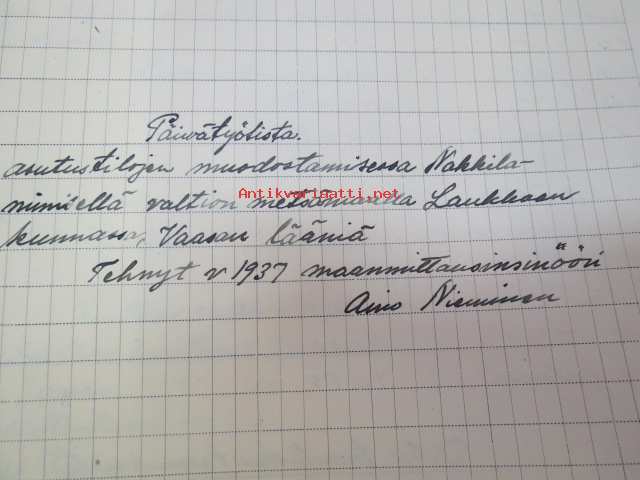 Päivätyölista.
asutustilojen muodostamisessa Nakkila-
nimisellä valtion metsämaalla Laukkaan
Antikvariaatti.net
kunnassa, Vaasan lääniä
Tehnyt v 1937 maanmittausinsinööri
Aino Nieminen